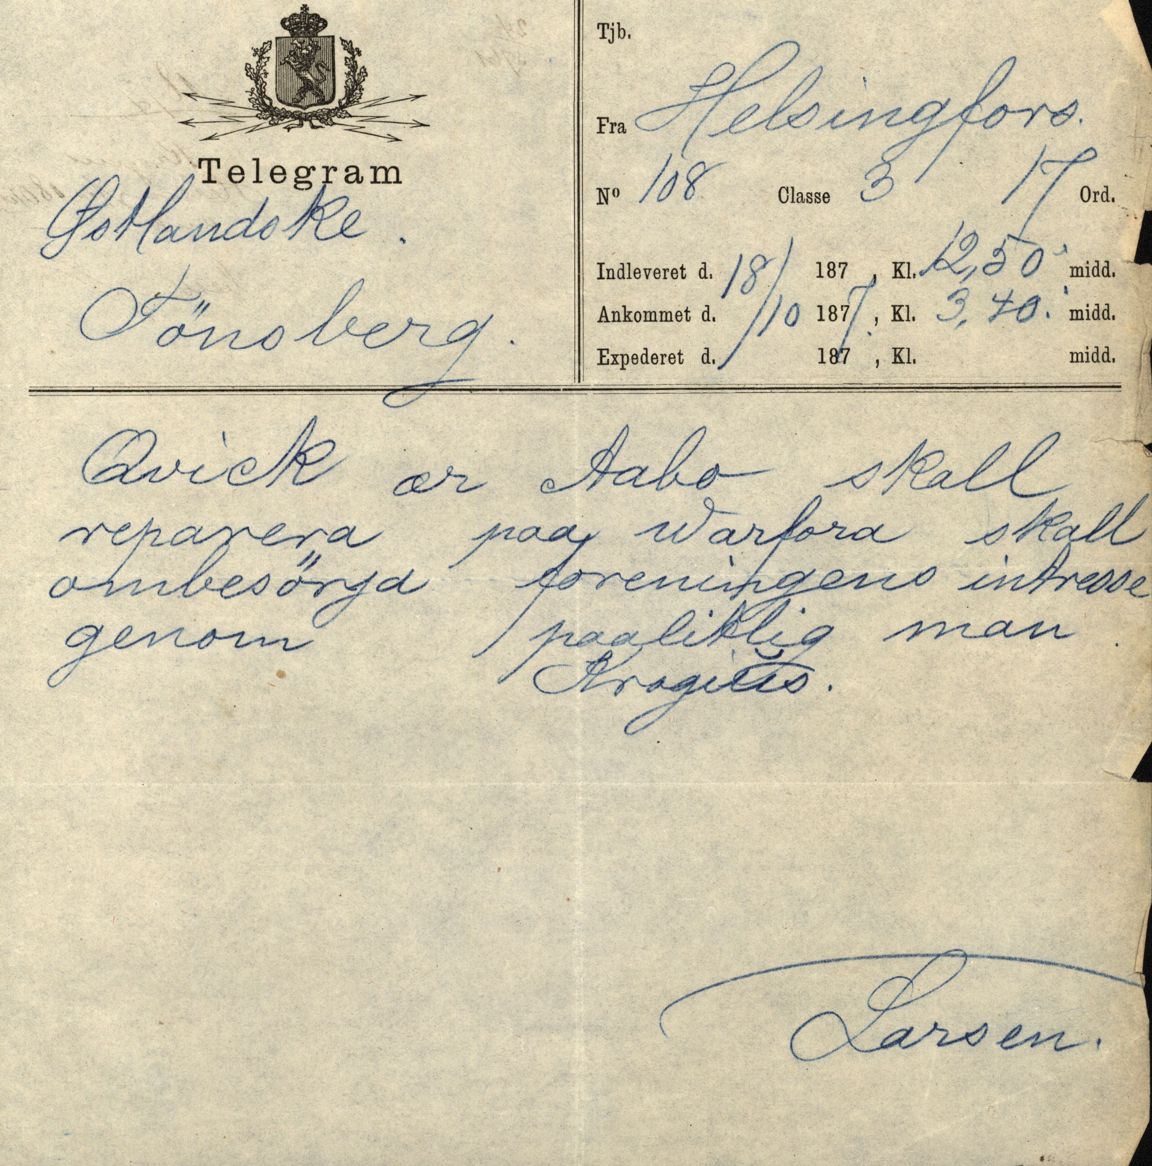 Telegram
Østlandske.
Tönsberg.
Tjb.
Fra Helsingfors.
Nº 108 Classe 3 17 Ord.
Indleveret d. 18/ 187 , Kl. 12,50 midd.
Ankommet d. /10 1877 , Kl. 3,40. midd.
Expederet d. 187 , Kl. midd.
Qvick ær Aabo skall
reparera paa Warfora skall
ombesörja foreningens intresse
genom paalitlig man
Krogius.
Larsen.